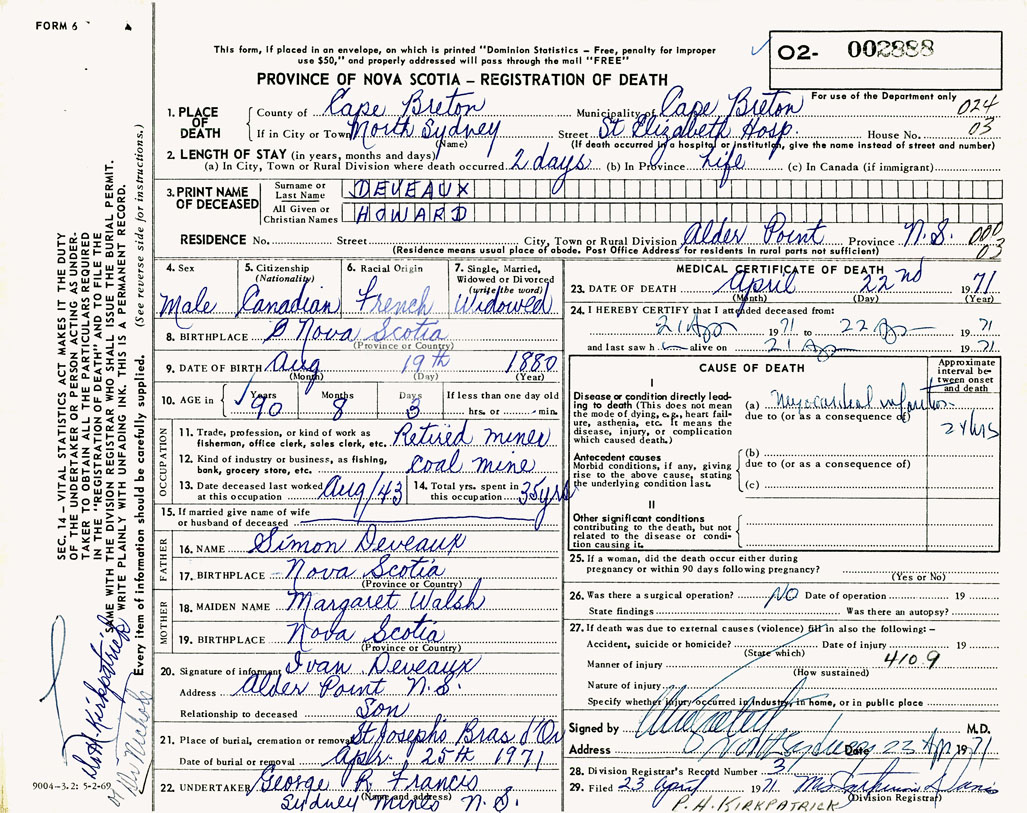 FORM 6
This form, if placed in an envelope, on which is printed "Dominion Statistics – Free, penalty for improper
use $50," and properly addressed will pass through the mail "FREE"
O2- 002888
PROVINCE OF NOVA SCOTIA – REGISTRATION OF DEATH
For use of the Department only
024
03
1. PLACE OF DEATH
County of Cape Breton Municipality of Cape Breton
If in City or Town North Sydney Street St Elizabeth Hosp. House No.
(Name) (If death occurred in a hospital or institution, give the name instead of street and number)
2. LENGTH OF STAY (in years, months and days)
(a) In City, Town or Rural Division where death occurred 2 days (b) In Province Life (c) In Canada (if immigrant)
3. PRINT NAME OF DECEASED
Surname or Last Name DEVEAUX
All Given or Christian Names HOWARD
RESIDENCE No. Street City, Town or Rural Division Alder Point Province N.S.
000
03
03
(Residence means usual place of abode. Post Office Address for residents in rural parts not sufficient)
4. Sex
Male
5. Citizenship
(Nationality)
Canadian
6. Racial Origin
French
7. Single, Married,
Widowed or Divorced
(write the word)
Widowed
8. BIRTHPLACE Nova Scotia
(Province or Country)
9. DATE OF BIRTH Aug 19th 1880
(Month) (Day) (Year)
10. AGE in Years Months Days If less than one day old
90 8 3 hrs. or min.
OCCUPATION
11. Trade, profession, or kind of work as
fisherman, office clerk, sales clerk, etc. Retired miner
12. Kind of industry or business, as fishing,
bank, grocery store, etc. Coal mine
13. Date deceased last worked
at this occupation Aug/43
14. Total yrs. spent in
this occupation 35 yrs
15. If married give name of wife
or husband of deceased
FATHER
16. NAME Simon Deveaux
17. BIRTHPLACE Nova Scotia
(Province or Country)
MOTHER
18. MAIDEN NAME Margaret Walsh
19. BIRTHPLACE Nova Scotia
(Province or Country)
20. Signature of informant Ivan Deveaux
Address Alder Point N.S.
Relationship to deceased Son
21. Place of burial, cremation or removal St Joseph's Bras d'Or
Date of burial or removal Apr. 25th 1971
22. UNDERTAKER George R Francis
(Name and address)
Sydney Mines N.S.
MEDICAL CERTIFICATE OF DEATH
23. DATE OF DEATH April 22nd 1971
(Month) (Day) (Year)
24. I HEREBY CERTIFY that I attended deceased from:
21 Apr 1971 to 22 Apr 1971
and last saw h alive on 21 Apr 1971
CAUSE OF DEATH
Approximate
interval be-
tween onset
and death
I
Disease or condition directly lead-
ing to death (This does not mean
the mode of dying, e.g., heart fail-
ure, asthenia, etc. It means the
disease, injury, or complication
which caused death.)
(a) Myocardial infarction
due to (or as consequence of)
24 hrs
Antecedent causes
Morbid conditions, if any, giving
rise to the above cause, stating
the underlying condition last.
(b)
due to (or as a consequence of)
(c)
II
Other significant conditions
contributing to the death, but not
related to the disease or condi-
tion causing it.
25. If a woman, did the death occur either during
pregnancy or within 90 days following pregnancy?
(Yes or No)
26. Was there a surgical operation? NO Date of operation 19
State findings Was there an autopsy?
27. If death was due to external causes (violence) fill in also the following: –
Accident, suicide or homicide? Date of injury 19
(State which)
Manner of injury 4109
(How sustained)
Nature of injury
Specify whether injury occurred in industry, in home, or in public place
Signed by M.D.
Address North Sydney Date 23 Apr 1971
28. Division Registrar's Record Number 3
29. Filed 23 April 1971
(Division Registrar)
P. H. KIRKPATRICK
SEC. 14 – VITAL STATISTICS ACT MAKES IT THE DUTY
OF THE UNDERTAKER OR PERSON ACTING AS UNDER-
TAKER TO OBTAIN ALL THE PARTICULARS REQUIRED
IN THE "REGISTRATION OF DEATH" AND TO FILE THE
SAME WITH THE DIVISION REGISTRAR WHO SHALL ISSUE THE BURIAL PERMIT.
WRITE PLAINLY WITH UNFADING INK. THIS IS A PERMANENT RECORD.
Every item of information should be carefully supplied. (See reverse side for instructions.)
Kirkpatrick
9004-3.2: 5-2-69